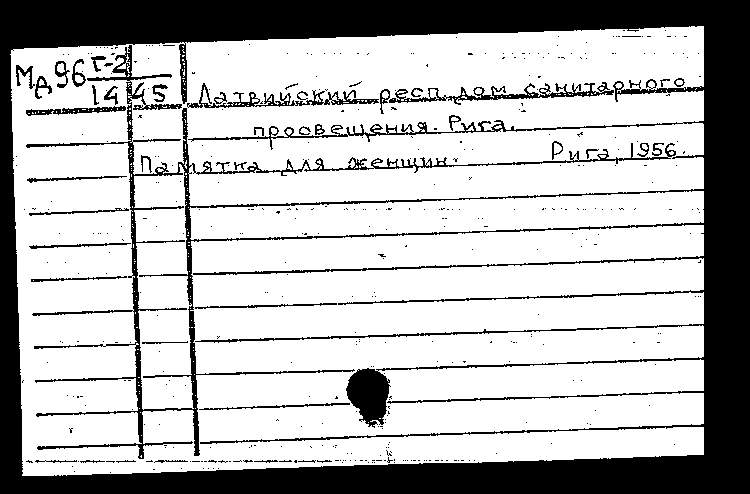 Мд96 Г-2
1445
Латвийский респ. дом санитарного
просвещения. Рига.
Памятка для женщин. Рига, 1956.